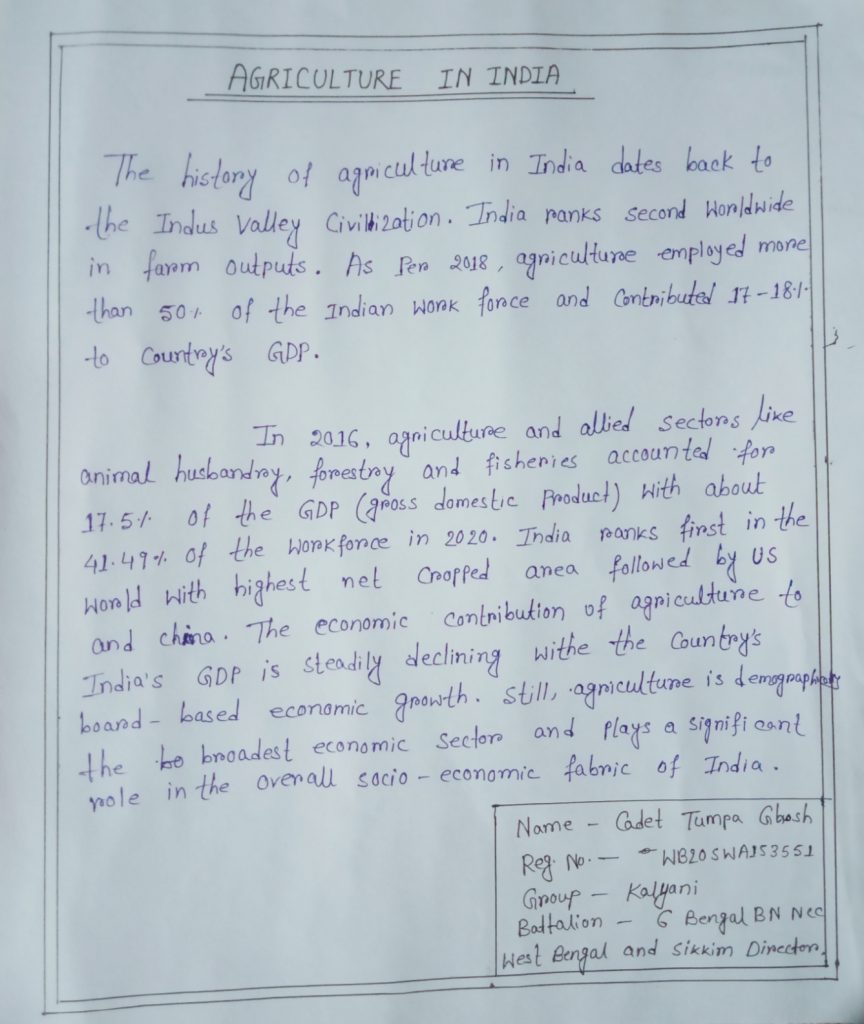 AGRICULTURE IN INDIA
The history of agriculture in India dates back to
the Indus Valley Civillization. India ranks second Worldwide
in farm outputs. As Per 2018, agriculture employed more
than 50% of the Indian Work force and Contributed 17-18%
to Country's GDP.
In 2016, agriculture and allied sectors like
animal husbandry, forestry and fisheries accounted for
17.5% of the GDP (gross domestic Product) With about
41.49% of the Workforce in 2020. India ranks first in the
World With highest net Cropped area followed by US
and china. The economic contribution of agriculture to
India's GDP is steadily declining withe the Country's
board-based economic growth. Still, agriculture is demographically
the broadest economic sector and plays a significant
role in the overall socio-economic fabric of India.
Name - Cadet Tumpa Ghosh
Reg. No. - WB20SWA153551
Group - Kalyani
Battalion - 6 Bengal BN Ncc
West Bengal and Sikkim Director